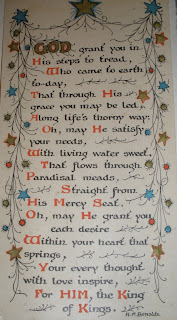 GOD, grant you in
His steps to tread,
Who came to earth
to-day,
That through His
grace you may be led,
Along life's thorny way:
Oh, may He satisfy
your needs,
With living water sweet,
That flows through
Paradisal meads,
Straight from
His Mercy Seat.
Oh, may He grant you
each desire
Within your heart that
springs,
Your every thought
with love inspire,
For HIM, the King
of Kings.